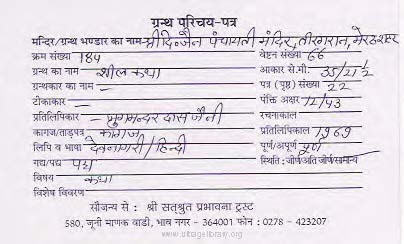 ग्रन्थ परिचय-पत्र
मन्दिर/ग्रन्थ भण्डार का नाम- श्री दि० जैन पंचायती मंदिर, तीरगरान, मेरठ शहर
क्रम संख्या 184 वेष्टन संख्या 66
ग्रन्थ का नाम - शील कथा आकार से.मी. 35/21 1/2
ग्रन्थकार का नाम - पत्र (पृष्ठ) संख्या 22
टीकाकार - पंक्ति अक्षर 12/43
प्रतिलिपिकार - जुगमन्दर दास जैनी रचनाकाल
कागज/ताड़पत्र कागज प्रतिलिपिकाल 1969
लिपि व भाषा देवनागरी/हिन्दी पूर्ण/अपूर्ण पूर्ण
गद्य/पद्य पद्य स्थिति : जीर्ण/अति जीर्ण/सामान्य
विषय कथा
विशेष विवरण
सौजन्य से : श्री सत्श्रुत प्रभावना ट्रस्ट
580, जूनी माणक वाडी, भाव नगर - 364001 फोन : 0278 - 423207